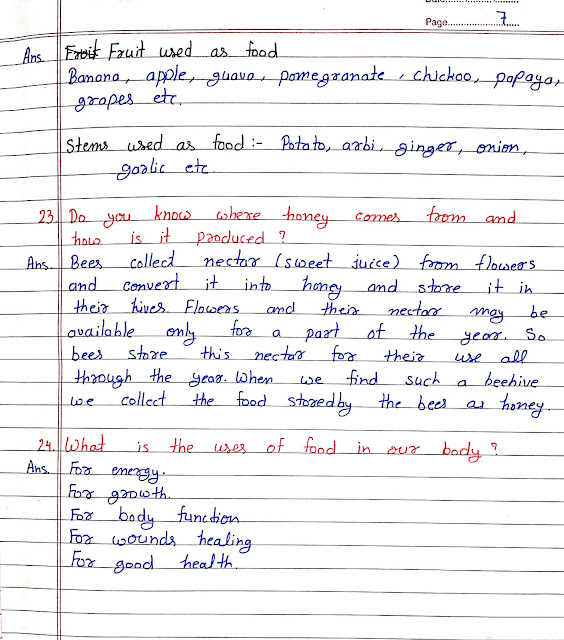 Page 7
Ans. Fruit Fruit used as food
Banana, apple, guava, pomegranate, chickoo, papaya,
grapes etc.
Stems used as food :- Potato, arbi, ginger, onion,
garlic etc.
23. Do you know where honey comes from and
how is it produced ?
Ans. Bees collect nectar (sweet juice) from flowers
and convert it into honey and store it in
their hives. Flowers and their nectar may be
available only for a part of the year. So
bees store this nectar for their use all
through the year. When we find such a beehive
we collect the food storedby the bees as honey.
24. What is the uses of food in our body ?
Ans. For energy.
For growth.
For body function
For wounds healing
For good health.